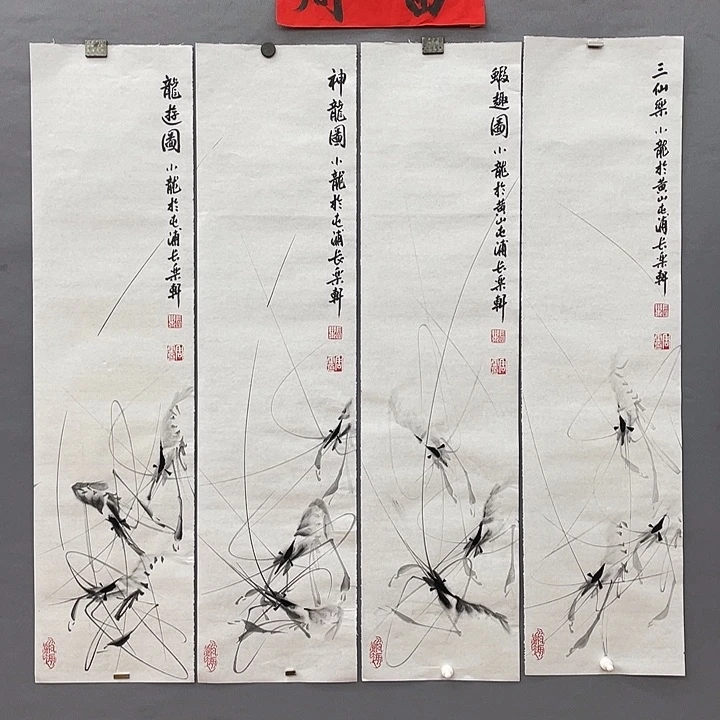 龍遊圖 小龍於屯浦長樂軒
神龍圖 小龍於屯浦長樂軒
鰕趣圖 小龍於黄山屯浦長樂軒
三仙樂 小龍於黄山屯浦長樂軒